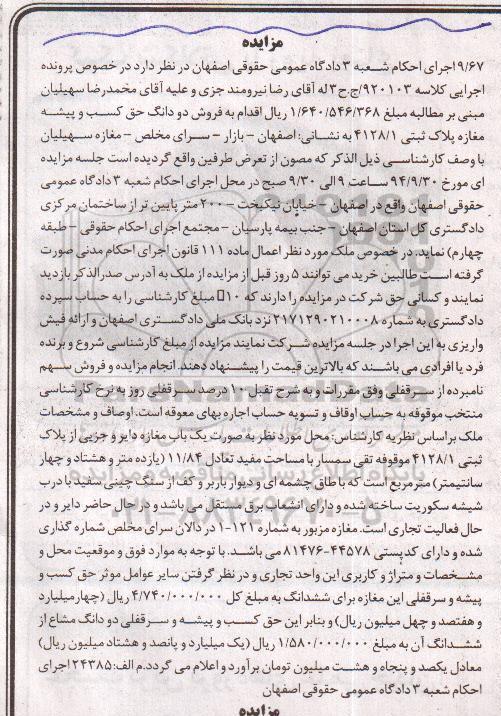 مزایده
۹/۶۷ اجرای احکام شعبه ۳ دادگاه عمومی حقوقی اصفهان در نظر دارد در خصوص پرونده
اجرایی کلاسه ۹۲۰۱۰۳/ج.ح ۳ له آقای رضا نیرومند جزی و علیه آقای محمدرضا سهیلیان
مبنی بر مطالبه مبلغ ۱/۶۴۰/۵۴۶/۳۶۸ ریال اقدام به فروش دو دانگ حق کسب و پیشه
مغازه پلاک ثبتی ۴۱۲۸/۱ به نشانی: اصفهان - بازار - سرای مخلص - مغازه سهیلیان
با وصف کارشناسی ذیل الذکر که مصون از تعرض طرفین واقع گردیده است جلسه مزایده
ای مورخ ۹۴/۹/۳۰ ساعت ۹ الی ۹/۳۰ صبح در محل اجرای احکام شعبه ۳ دادگاه عمومی
حقوقی اصفهان واقع در اصفهان - خیابان نیکبخت - ۲۰۰ متر پایین تر از ساختمان مرکزی
دادگستری کل استان اصفهان - جنب بیمه پارسیان - مجتمع اجرای احکام حقوقی - طبقه
چهارم) نماید. در خصوص ملک مورد نظر اعمال ماده ۱۱۱ قانون اجرای احکام مدنی صورت
گرفته است طالبین خرید می توانند ۵ روز قبل از مزایده از ملک به آدرس صدرالذکر بازدید
نمایند و کسانی حق شرکت در مزایده را دارند که ۱۰ مبلغ کارشناسی را به حساب سپرده
دادگستری به شماره ۲۱۷۱۲۹۰۲۱۰۰۰۸ نزد بانک ملی دادگستری اصفهان و ارائه فیش
واریزی به این اجرا در جلسه مزایده شرکت نمایند مزایده از مبلغ کارشناسی شروع و برنده
فرد یا افرادی می باشند که بالاترین قیمت را پیشنهاد دهند. انجام مزایده و فروش سهم
نامبرده از سرقفلی وفق مقررات و به شرح تقبل ۱۰ درصد سرقفلی روز به نرخ کارشناسی
منتخب موقوفه به حساب اوقاف و تسویه حساب اجاره بهای معوقه است. اوصاف و مشخصات
ملک براساس نظریه کارشناس: محل مورد نظر به صورت یک باب مغازه دایر و جزیی از پلاک
ثبتی ۴۱۲۸/۱ موقوفه تقی سمسار با مساحت مفید تعادل ۱۱/۸۴ (یازده متر و هشتاد و چهار
سانتیمتر) متر مربع است که با طاق چشمه ای و دیوار باربر و کف از سنگ چینی سفید با درب
شیشه سکوریت ساخته شده و دارای انشعاب برق مستقل می باشد و در حال حاضر دایر و در
حال فعالیت تجاری است. مغازه مزبور به شماره ۱۲۱-۱ در دالان سرای مخلص شماره گذاری
شده و دارای کدپستی ۴۴۵۷۸-۸۱۴۷۶ می باشد. با توجه به موارد فوق و موقعیت محل و
مشخصات و متراژ و کاربری این واحد تجاری و در نظر گرفتن سایر عوامل موثر حق کسب و
پیشه و سرقفلی این مغازه برای ششدانگ به مبلغ کل ۴/۷۴۰/۰۰۰/۰۰۰ ریال (چهارمیلیارد
و هفتصد و چهل میلیون ریال) و بنابر این حق کسب و پیشه و سرقفلی دو دانگ مشاع از
ششدانگ آن به مبلغ ۱/۵۸۰/۰۰۰/۰۰۰ ریال (یک میلیارد و پانصد و هشتاد میلیون ریال)
معادل یکصد و پنجاه و هشت میلیون تومان برآورد و اعلام می گردد.م الف: ۲۴۳۸۵ اجرای
احکام شعبه ۳ دادگاه عمومی حقوقی اصفهان
مزایده